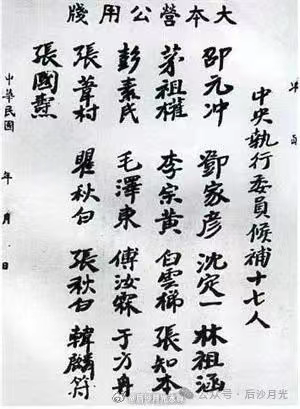 大本營公用牋
中央執行委員候補十七人
邵元冲 鄧家彥 沈定一 林祖涵
茅祖權 李宗黃 白雲梯 張知本
彭素民 毛澤東 傅汝霖 于方舟
張葦村 瞿秋白 張秋白 韓麟符
張國燾
中華民國 年 月 日
公众号 · 后沙月光